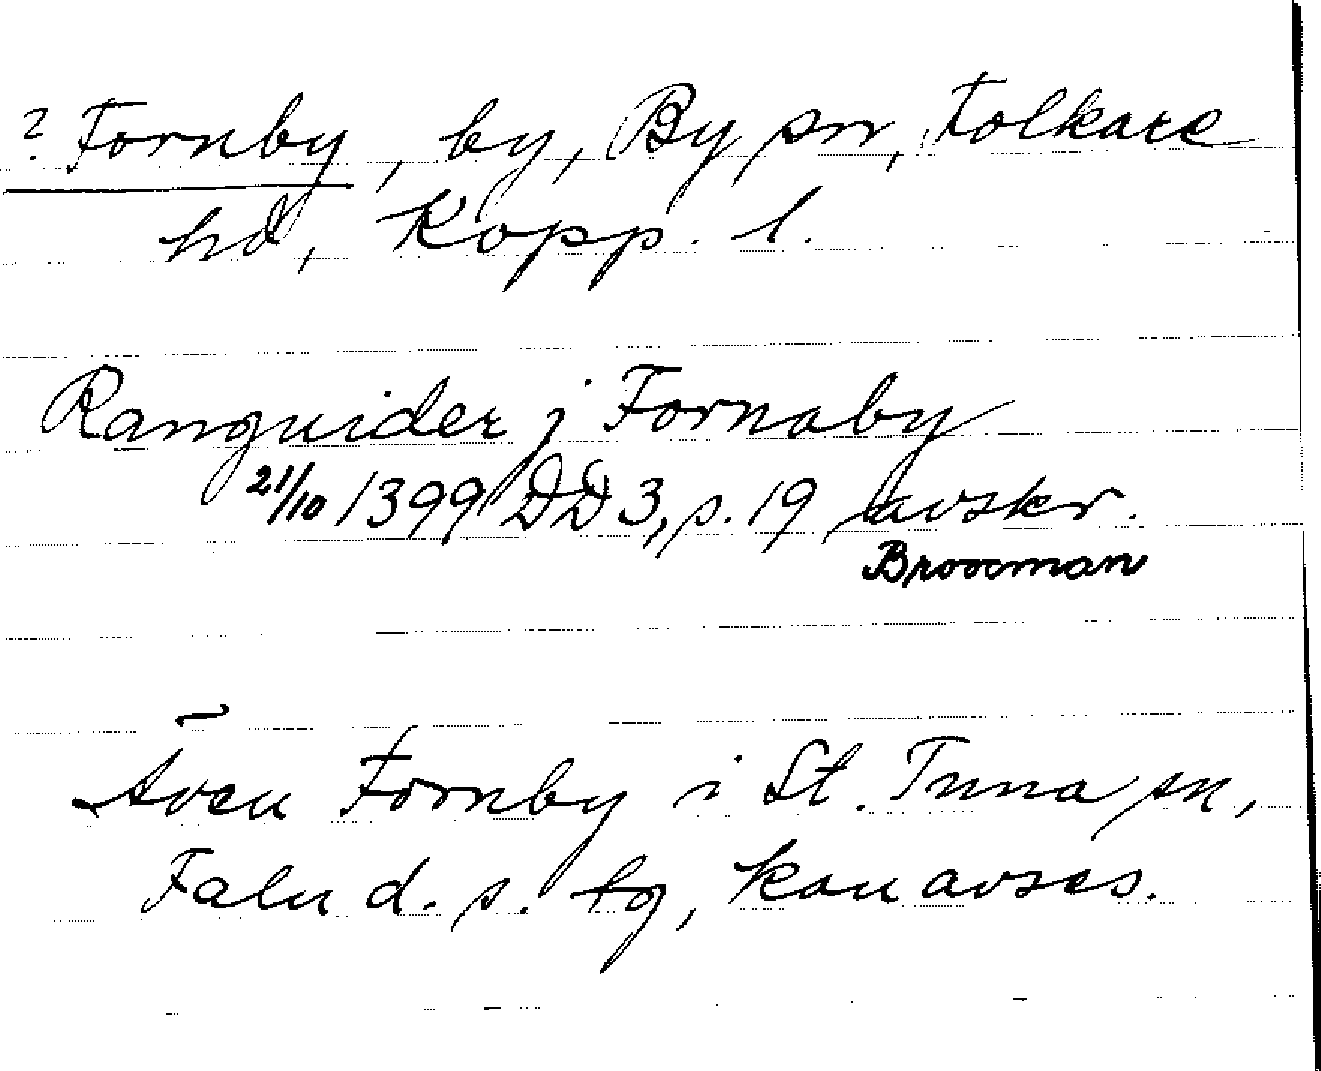 ? Fornby, by, By sn, Folkare
hd, Kopp. l.
Ranguider j Fornaby
21/10 1399 DD 3, s. 19 avskr.
Broocman
Även Fornby i St. Tuna sn,
Falu d. s. tg, kan avses.